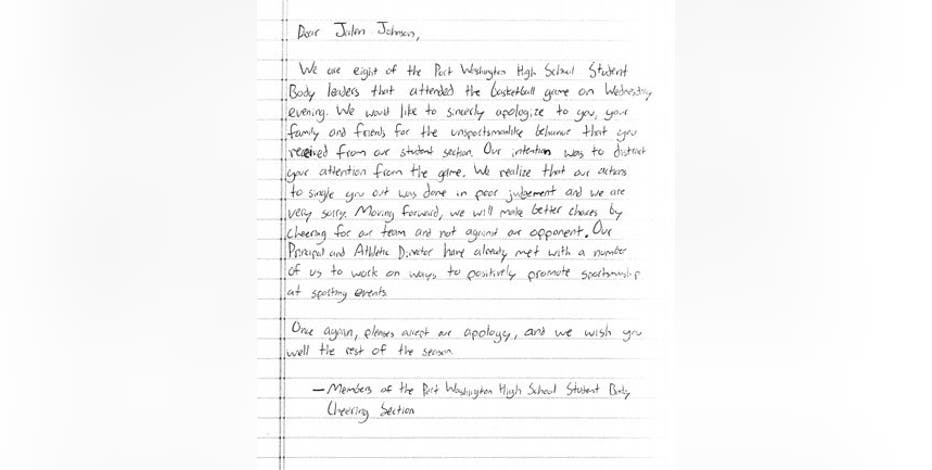 Dear Jalen Johnson,
We are eight of the Port Washington High School Student
Body leaders that attended the basketball game on Wednesday
evening. We would like to sincerly apologize to you, your
family and friends for the unsportsmanlike behavior that you
received from our student section. Our intention was to distract
your attention from the game. We realize that our actions
to single you out was done in poor judgement and we are
very sorry. Moving forward, we will make better choices by
cheering for our team and not against our opponent. Our
Principal and Athletic Director have already met with a number
of us to work on ways to positively promote sportsmanship
at sporting events.
Once again, please accept our apology, and we wish you
well the rest of the season.
- Members of the Port Washington High School Student Body
Cheering Section